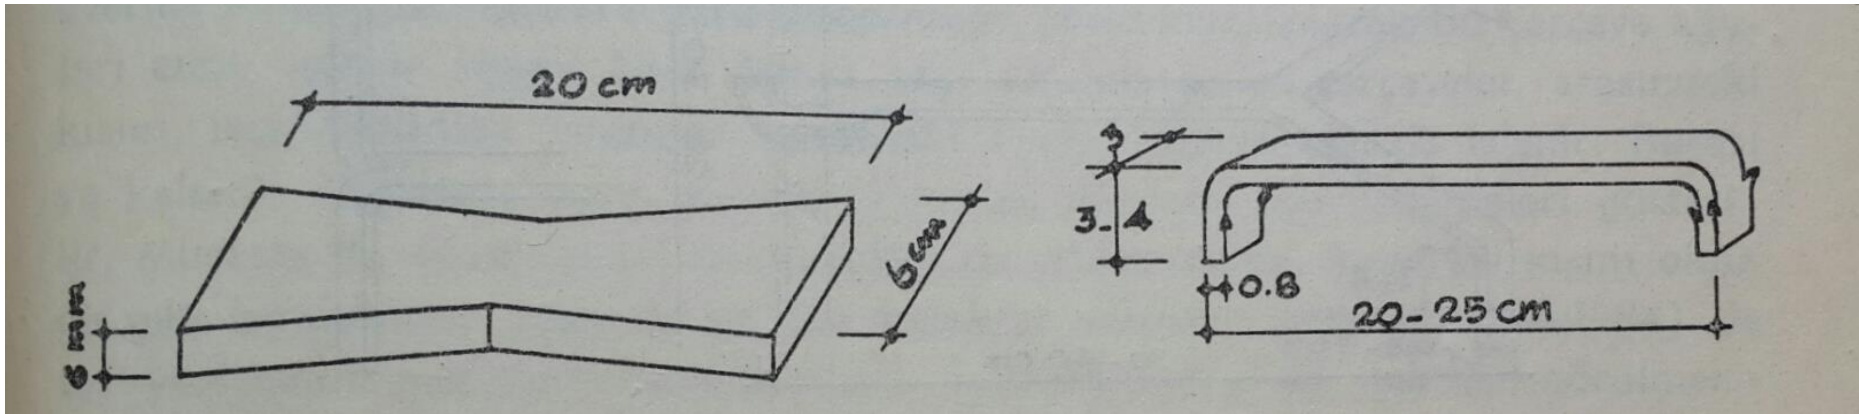 20 cm
6 cm
6 mm
3
3-4
0.8
20-25 cm